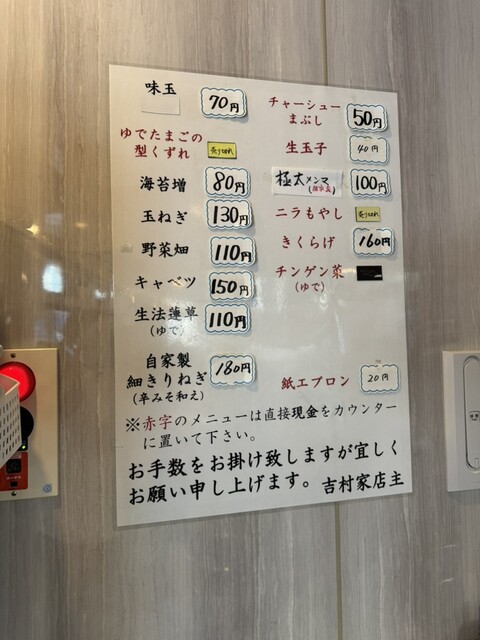 味玉 70円
ゆでたまごの
型くずれ 売り切れ
海苔増 80円
玉ねぎ 130円
野菜畑 110円
キャベツ 150円
生法蓮草
(ゆで) 110円
自家製
細きりねぎ 180円
(辛みそ和え)
チャーシュー
まぶし 50円
生玉子 40円
極太メンマ 100円
ニラもやし 売り切れ
きくらげ 160円
チンゲン菜
(ゆで)
紙エプロン 20円
※赤字のメニューは直接現金をカウンター
に置いて下さい。
お手数をお掛け致しますが宜しく
お願い申し上げます。吉村家店主